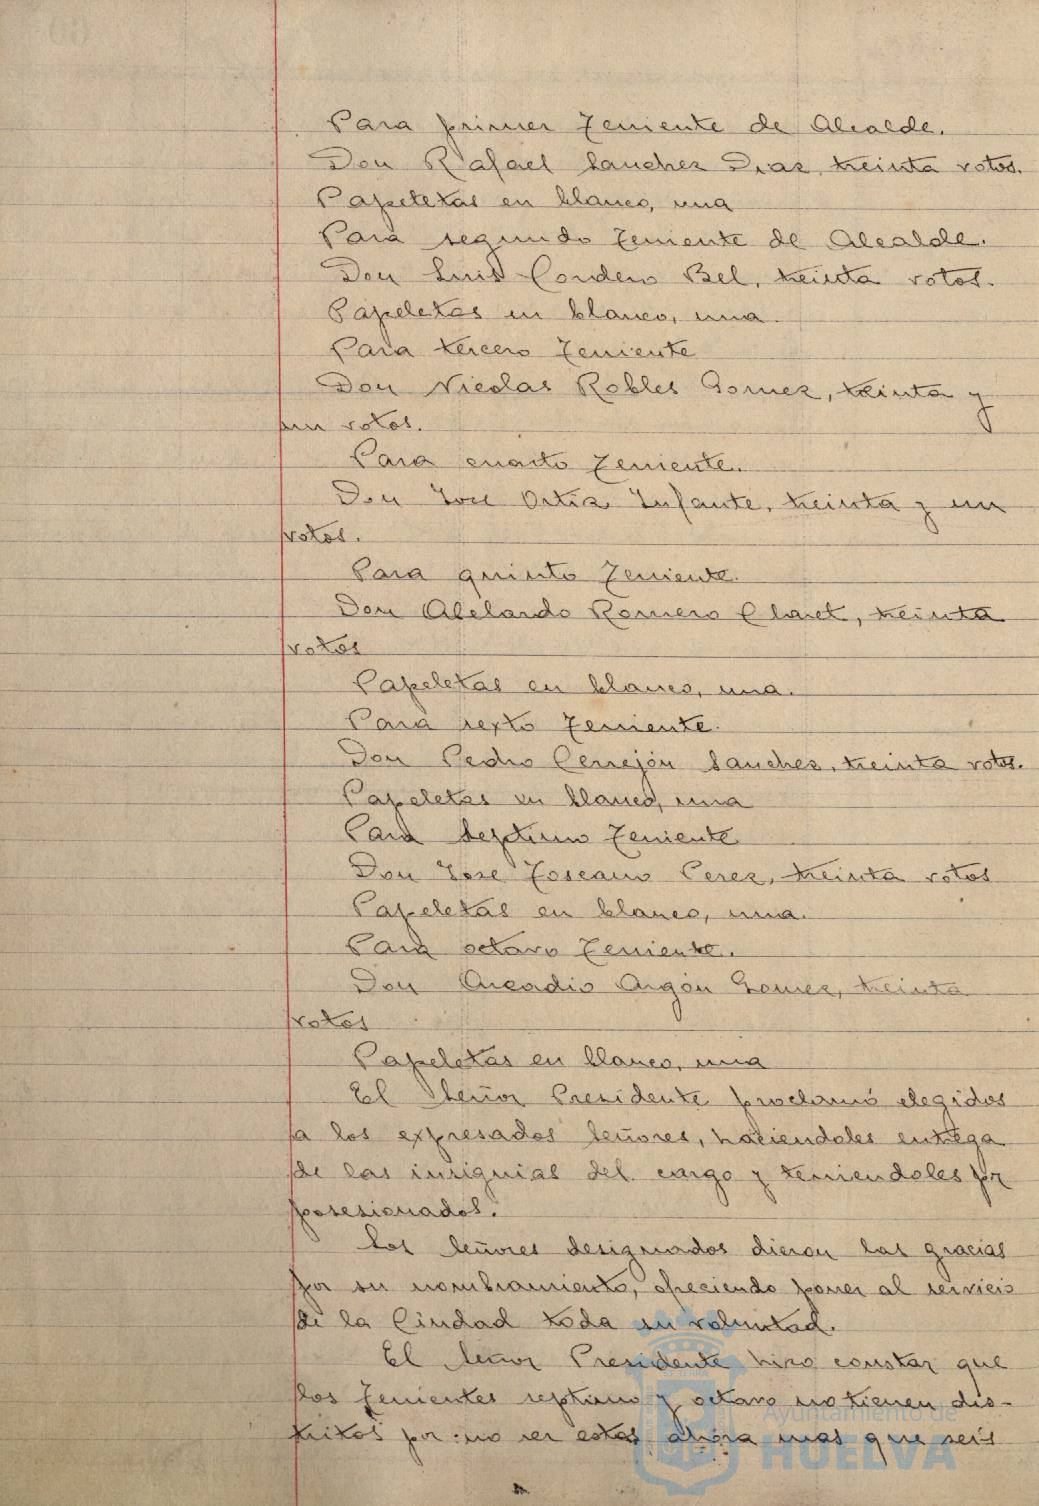 Para primer Teniente de Alcalde.
Don Rafael Sanchez Diaz, treinta votos.
Papeletas en blanco, una
Para segundo Teniente de Alcalde.
Don Luis Cordero Bel, treinta votos.
Papeletas en blanco, una.
Para tercero Teniente
Don Nicolas Robles Gomez, treinta y
un votos.
Para cuarto Teniente.
Don Jose Ortiz Infante, treinta y un
votos.
Para quinto Teniente.
Don Abelardo Romero Claret, treinta
votos
Papeletas en blanco, una.
Para sexto Teniente.
Don Pedro Cerrejón Sanchez, treinta votos.
Papeletas en blanco, una
Para septimo Teniente
Don Jose Toscano Perez, treinta votos
Papeletas en blanco, una.
Para octavo Teniente.
Don Arcadio Aragón Gomez, treinta
votos
Papeletas en blanco, una
El Señor Presidente proclamó elegidos
a los expresados señores, haciendoles entrega
de las insignias del cargo y teniendoles por
posesionados.
Los señores designados dieron las gracias
por su nombramiento, ofreciendo poner al servicio
de la Ciudad toda su voluntad.
El Señor Presidente hizo constar que
los Tenientes septimo y octavo no tienen dis-
tritos por no ser estos ahora mas que seis
Ayuntamiento de
HUELVA